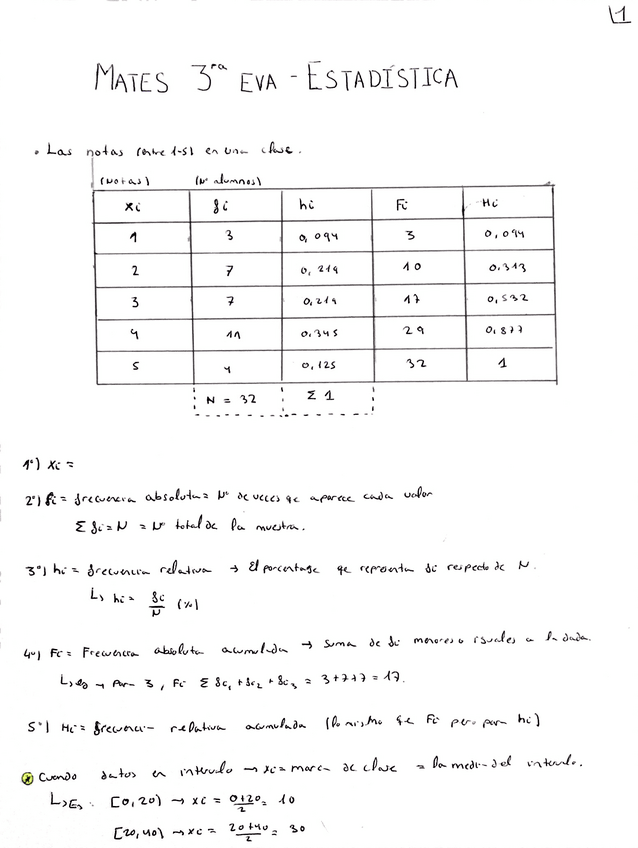 1
MATES 3ra EVA - ESTADÍSTICA
• Las notas (entre 1-5) en una clase.
(Notas) (Nº alumnos)
xi fi hi Fi Hi
1 3 0,094 3 0,094
2 7 0,219 10 0,313
3 7 0,219 17 0,532
4 11 0,345 29 0,877
5 4 0,125 32 1
N = 32 Σ 1
1º) xi =
2º) fi = frecuencia absoluta = Nº de veces qe aparece cada valor
Σ fi = N = Nº total de la muestra.
3º) hi = frecuencia relativa → El porcentage qe representa fi respecto de N.
↳ hi = fi/N (%)
4º) Fi = Frecuencia absoluta acumulada → suma de fi menores o iguales a la dada.
↳ eg → Para 3, Fi Σ fi1 + fi2 + fi3 = 3+7+7 = 17.
5º) Hi = frecuencia relativa acumulada (lo mismo qe Fi pero para hi)
* Cuando datos en intervalo → xi = marca de clase = la media del intervalo.
↳ Eg: [0,20) → xi = 0+20/2 = 10
[20,40) → xi = 20+40/2 = 30